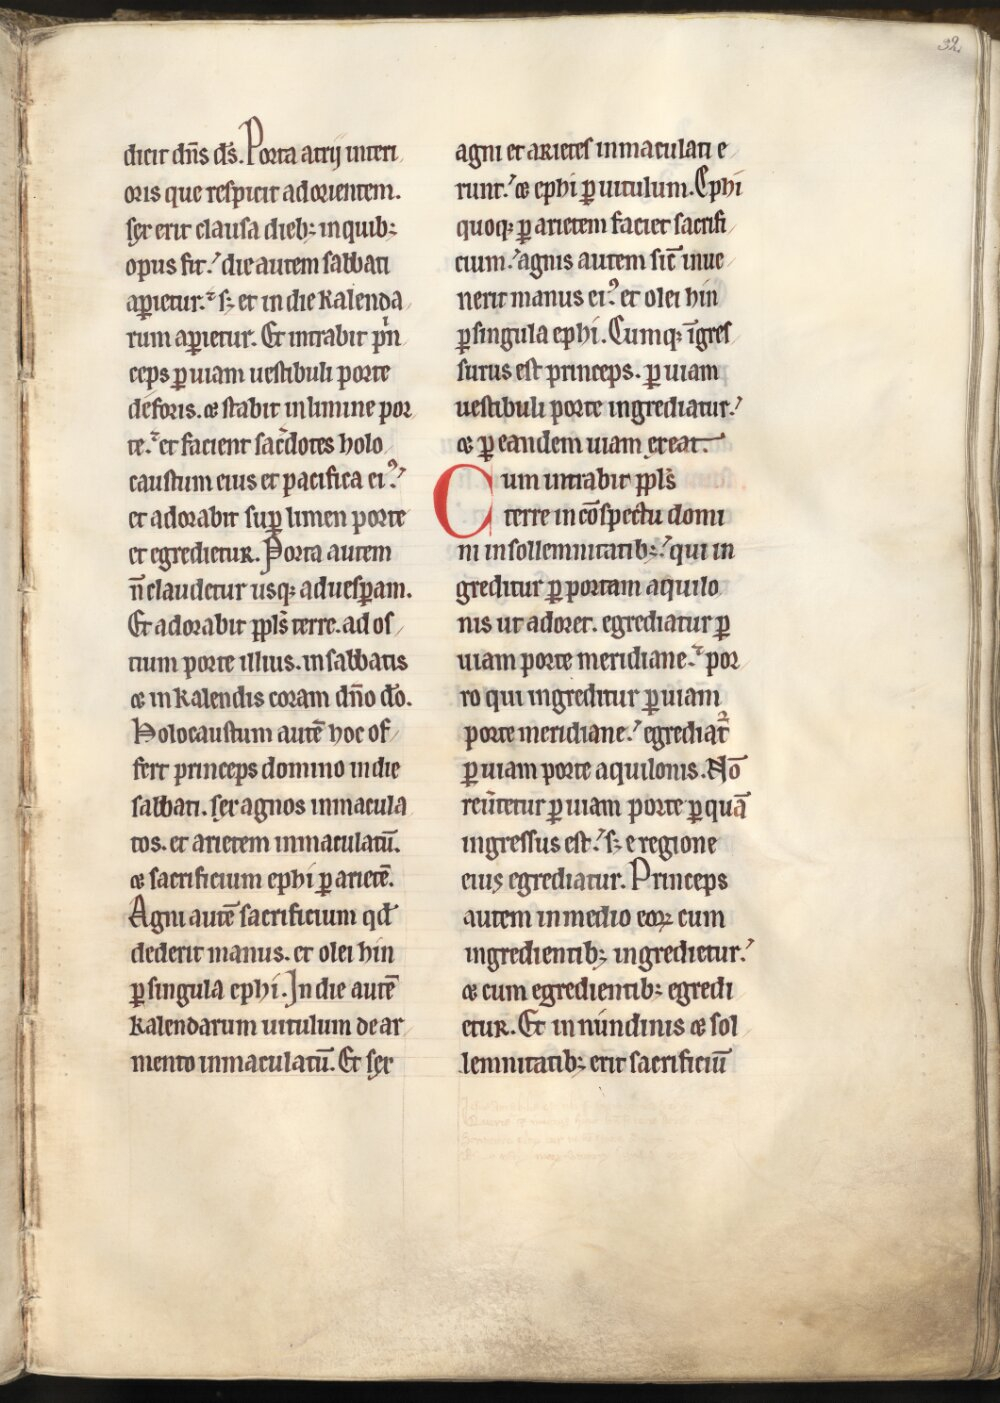 32
dicit dn̄s ds̄. Porta atrij interi
oris que respicit ad orientem.
sex erit clausa dieb; in quib;
opus fit. die autem sabbati
aꝑietur. sꝫ et in die kalenda
rum aꝑietur. Et intrabit pͥn
ceps ꝑ uiam uestibuli porte
deforis. ⁊ stabit in limine por
te. et facient sac̄dotes holo
caustum eius et pacifica eiꝰ.
et adorabit suꝑ limen porte
et egredietur. Porta autem
n̄ claudetur usqꝫ ad uesꝑam.
Et adorabit ppl̄s terre. ad os
tium porte illius. in sabbatis
⁊ in kalendis coram dn̄o dō.
Holocaustum autē hoc of
fert princeps domino in die
sabbati. sex agnos inmacula
tos. et arietem inmaculatū.
⁊ sacrificium ephi ꝑ arietē.
Agni autē sacrificium qd̄
dederit manus. et olei hin
ꝑ singula ephi. In die autē
kalendarum uitulum de ar
mento inmaculatū. Et sex
agni et arietes inmaculati e
runt. ⁊ ephi ꝑ uitulum. Ephi
quoqꝫ ꝑ arietem faciet sacrifi
cium. agnis autem sic̄ inue
nerit manus eiꝰ. et olei hin
ꝑ singula ephi. Cumqꝫ īgres
surus est princeps. ꝑ uiam
uestibuli porte ingrediatur.
⁊ ꝑ eandem uiam exeat.
Cum intrabit ppl̄s
terre in cōspectu domi
ni in sollemnitatib;. qui in
greditur ꝑ portam aquilo
nis ut adoret. egrediatur ꝑ
uiam porte meridiane. por
ro qui ingreditur ꝑ uiam
porte meridiane. egrediat᷑
ꝑ uiam porte aquilonis. Nō
reūtetur ꝑ uiam porte ꝑ quā
ingressus est. sꝫ e regione
eius egrediatur. Princeps
autem in medio eoꝝ cum
ingredientib; ingredietur.
⁊ cum egredientib; egredi
etur. Et in nundinis ⁊ sol
lemnitatib; erit sacrificiū